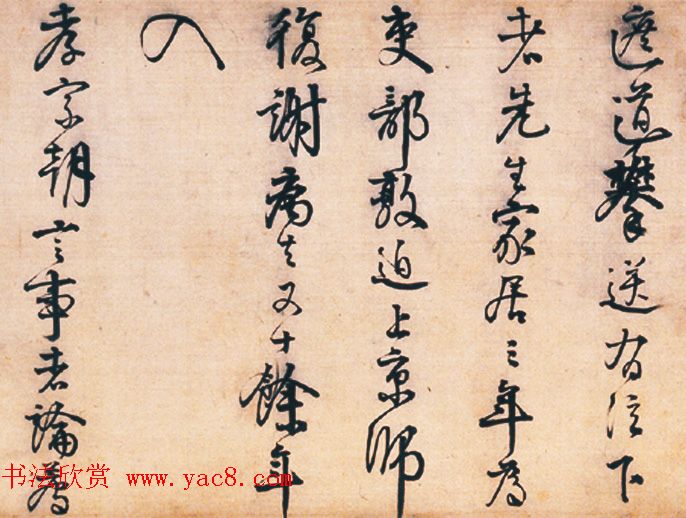 遮道攀送有泣下
者先生家居三年為
吏部敦迫上京師
復謝病去又十餘年
入
孝宗朝言事者論薦
书法欣赏 www.yac8.com